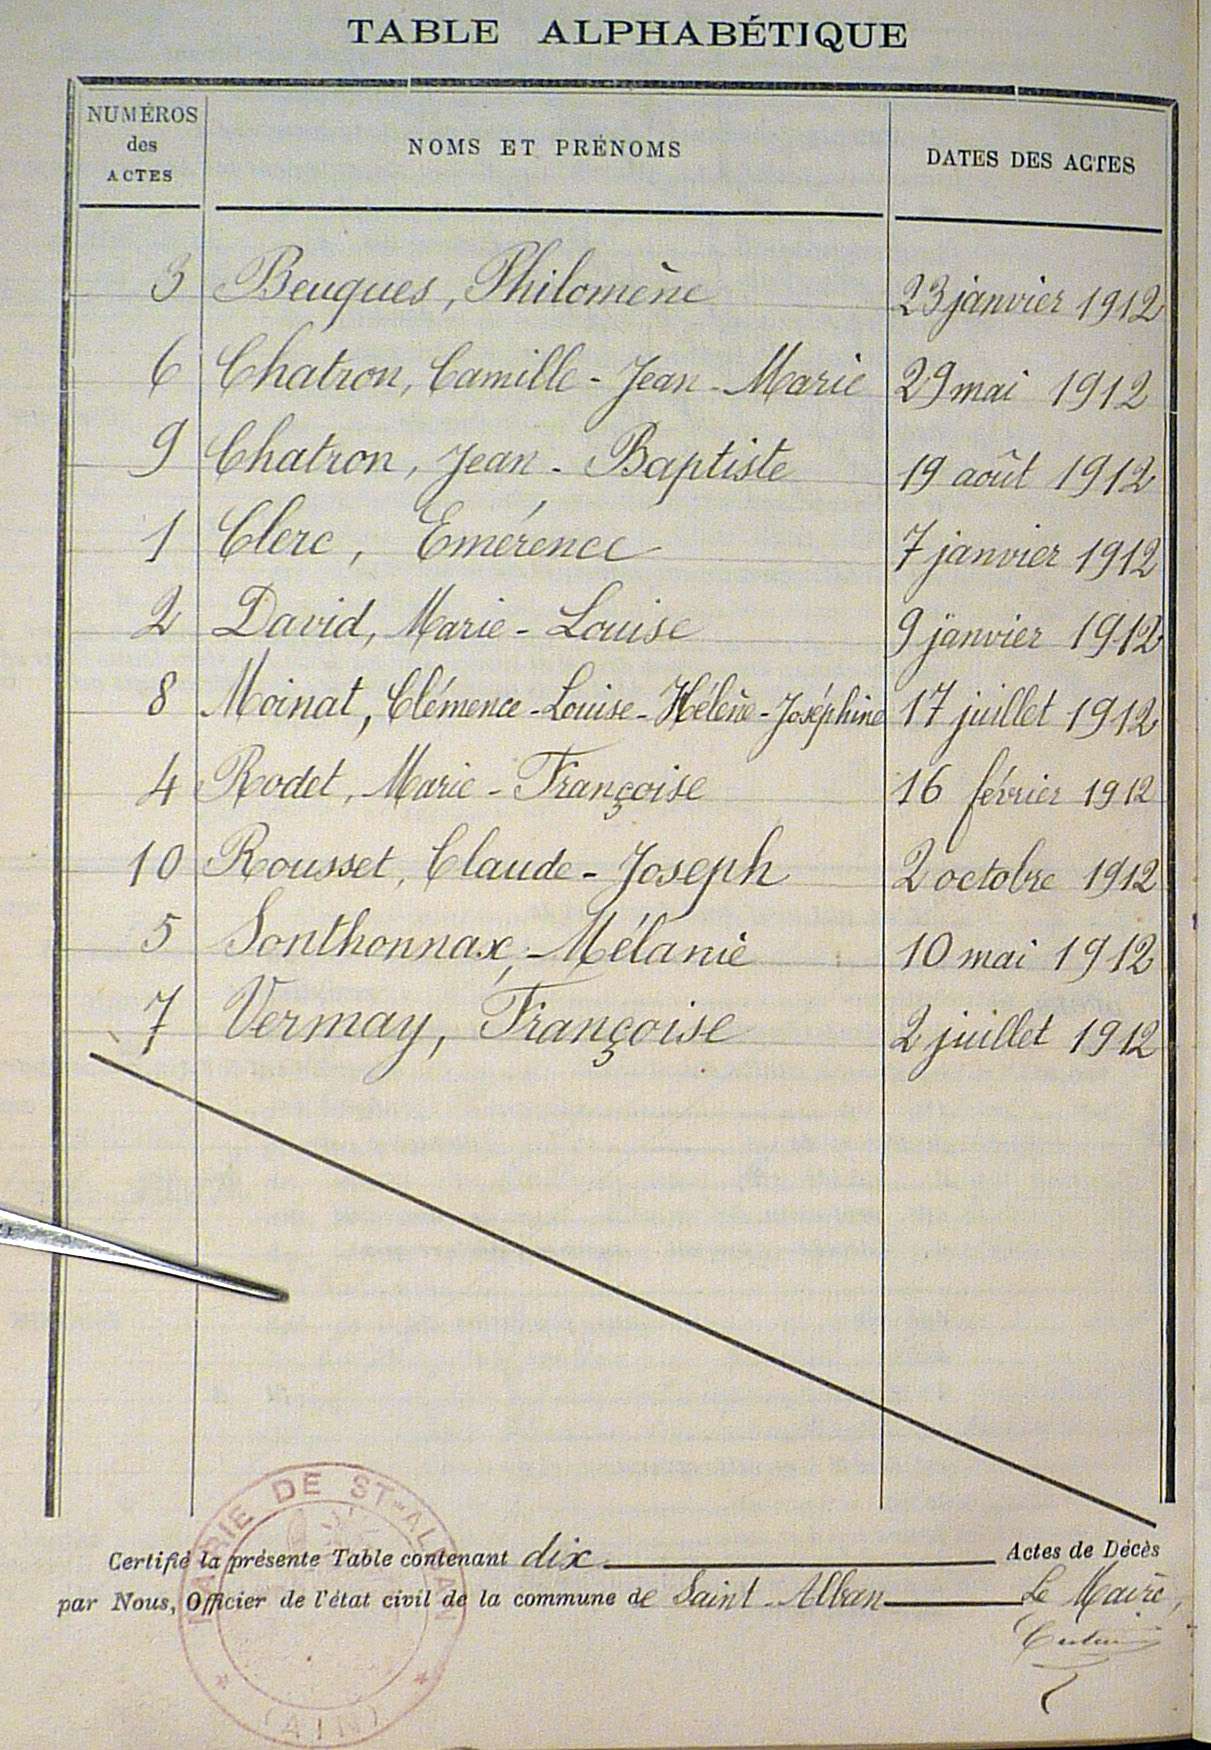 TABLE ALPHABÉTIQUE
NUMÉROS des ACTES NOMS ET PRÉNOMS DATES DES ACTES
3 Beuques, Philomène 23 janvier 1912
6 Chatron, Camille-Jean-Marie 29 mai 1912
9 Chatron, Jean-Baptiste 19 août 1912
1 Clerc, Emérence 7 janvier 1912
2 David, Marie-Louise 9 janvier 1912
8 Moinat, Clémence-Louise-Hélène-Joséphine 17 juillet 1912
4 Rodet, Marie-Françoise 16 février 1912
10 Rousset, Claude-Joseph 2 octobre 1912
5 Sonthonnax, Mélanie 10 mai 1912
7 Vermay, Françoise 2 juillet 1912
Certifié la présente Table contenant dix Actes de Décès
par Nous, Officier de l'état civil de la commune de Saint-Alban Le Maire,
MAIRIE DE ST-ALBAN
(AIN)